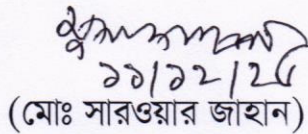 ১১/১২/২৫
(মোঃ সারওয়ার জাহান)